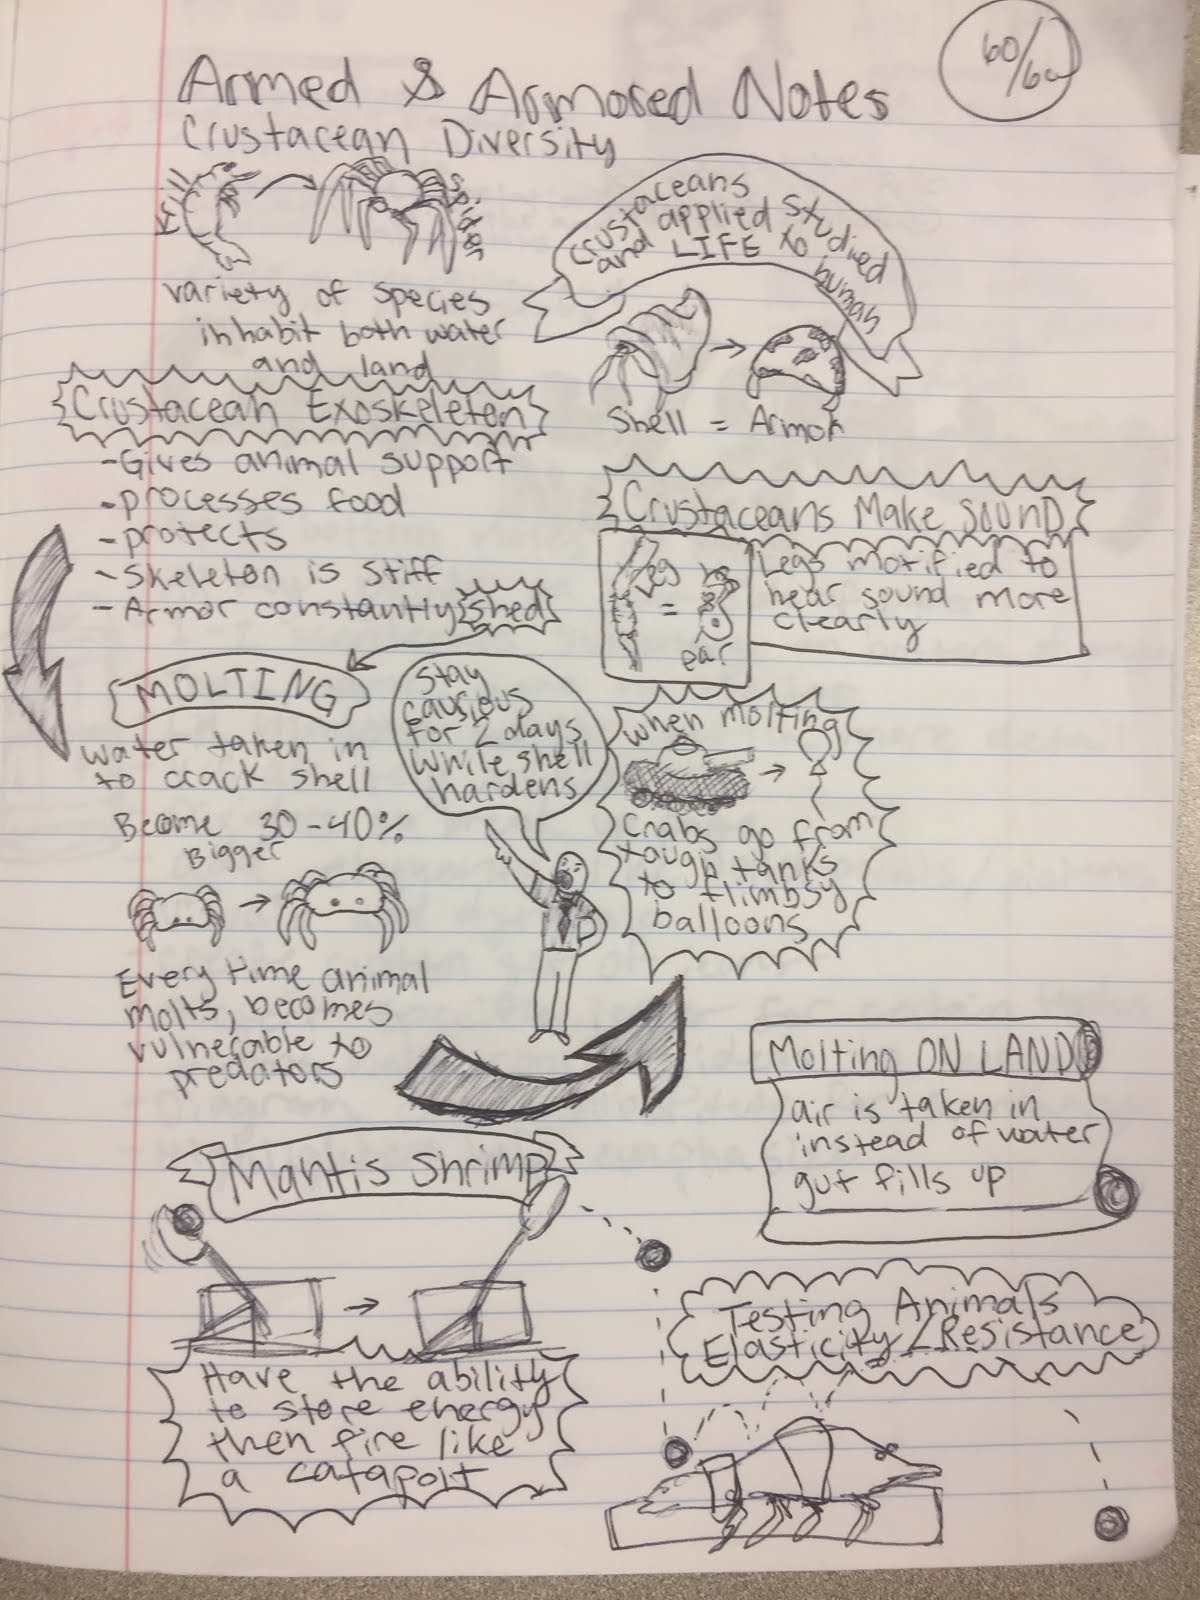 60/60
Armed & Armored Notes
Crustacean Diversity
Krill
Spider
variety of species
inhabit both water
and land
Crustaceans studied
and applied to human
LIFE
Shell = Armor
Crustacean Exoskeleton
-Gives animal support
-processes food
-protects
-Skeleton is stiff
-Armor constantly shed
Crustaceans Make SOUND
Leg
=
ear
Legs motified to
hear sound more
clearly
MOLTING
water taken in
to crack shell
Become 30-40%
Bigger
Every time animal
molts, becomes
vulnerable to
predators
Stay
causious
for 2 days
while shell
hardens
when molting
Crabs go from
tough tanks
to flimbsy
balloons
Molting ON LAND
air is taken in
instead of water
gut fills up
Mantis Shrimp
Have the ability
to store energy
then fire like
a catapolt
Testing Animals
Elasticity/Resistance